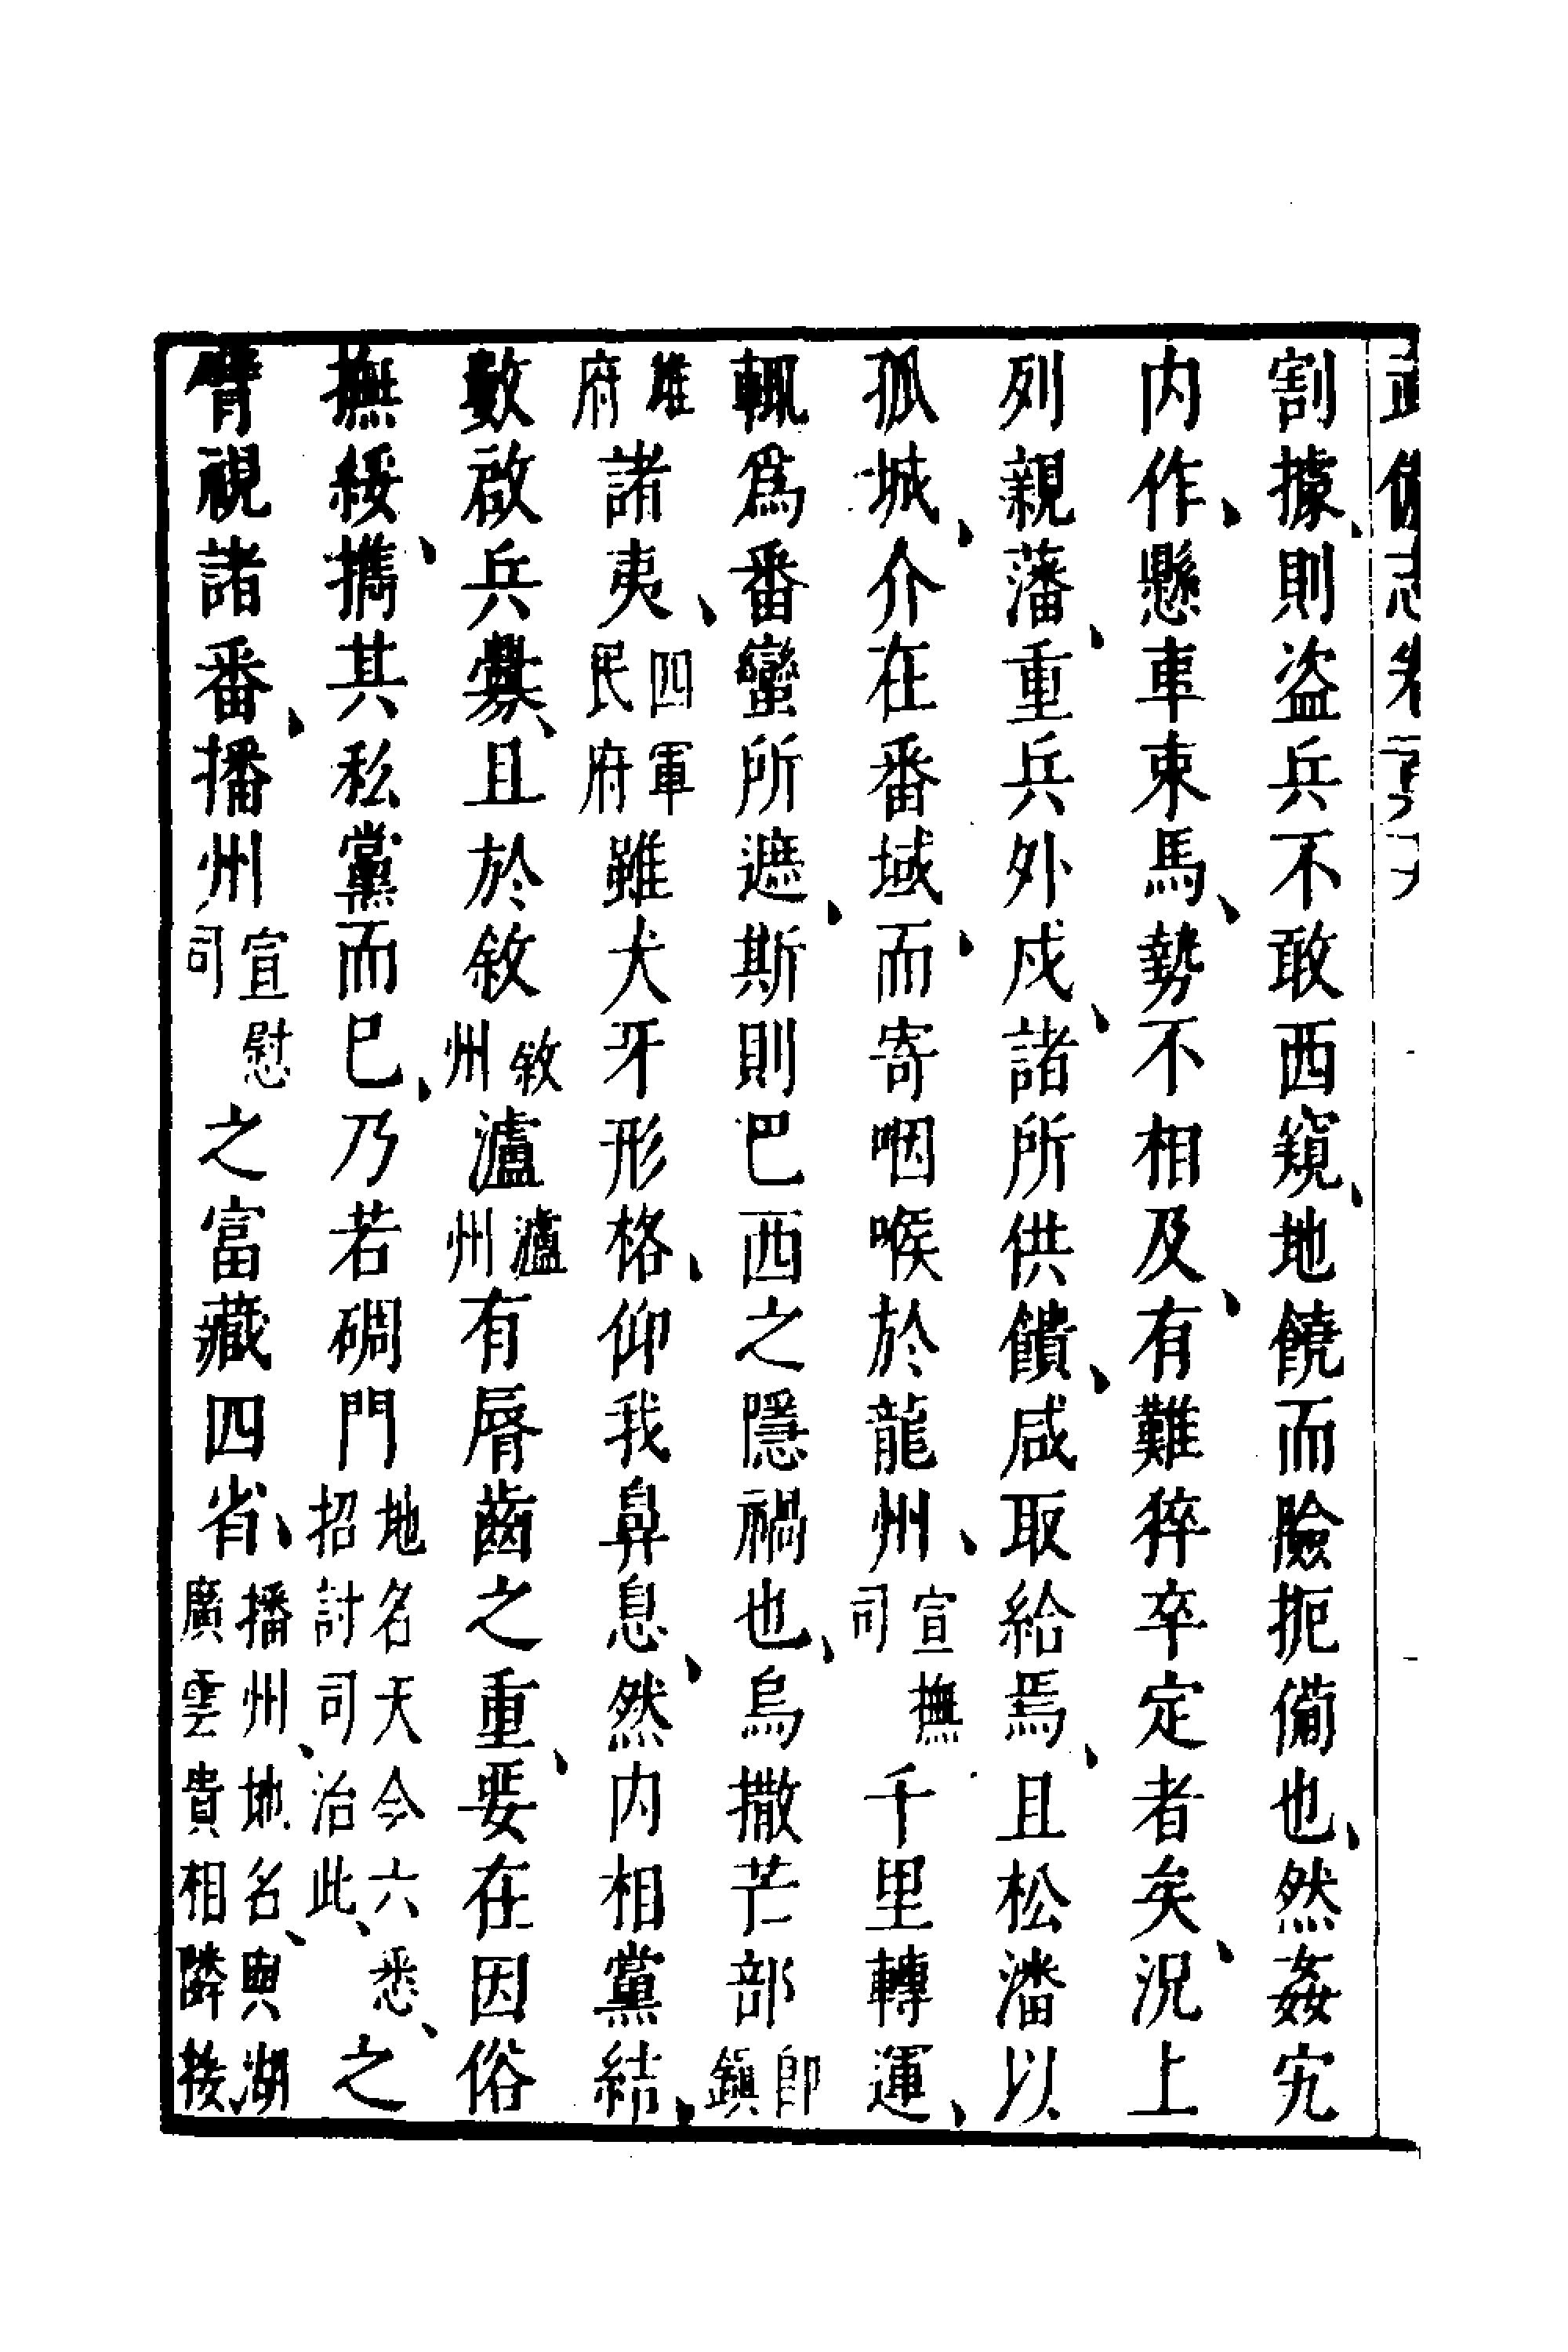 武備志卷
割據、則盜兵不敢西窺、地饒而險扼備也、然姦宄
内作、懸車束馬、勢不相及、有難猝卒定者矣、況上
列親藩、重兵外戍、諸所供饋、咸取給焉、且松潘以
孤城、介在番域、而寄咽喉於龍州、宣撫司千里轉運、
輒爲番蠻所遮、斯則巴西之隱禍也、烏撒芒部即鎮
雄府諸夷、四軍民府雖犬牙形格、仰我鼻息、然内相黨結、
數啟兵釁、且於敘敘州瀘瀘州有脣齒之重、要在因俗
撫綏、攜其私黨而巳、乃若碉門地名天今六悉、招討司治此、之
臂視諸番、播州宣慰司之富藏四省、播州、地名、與湖廣雲貴相隣接